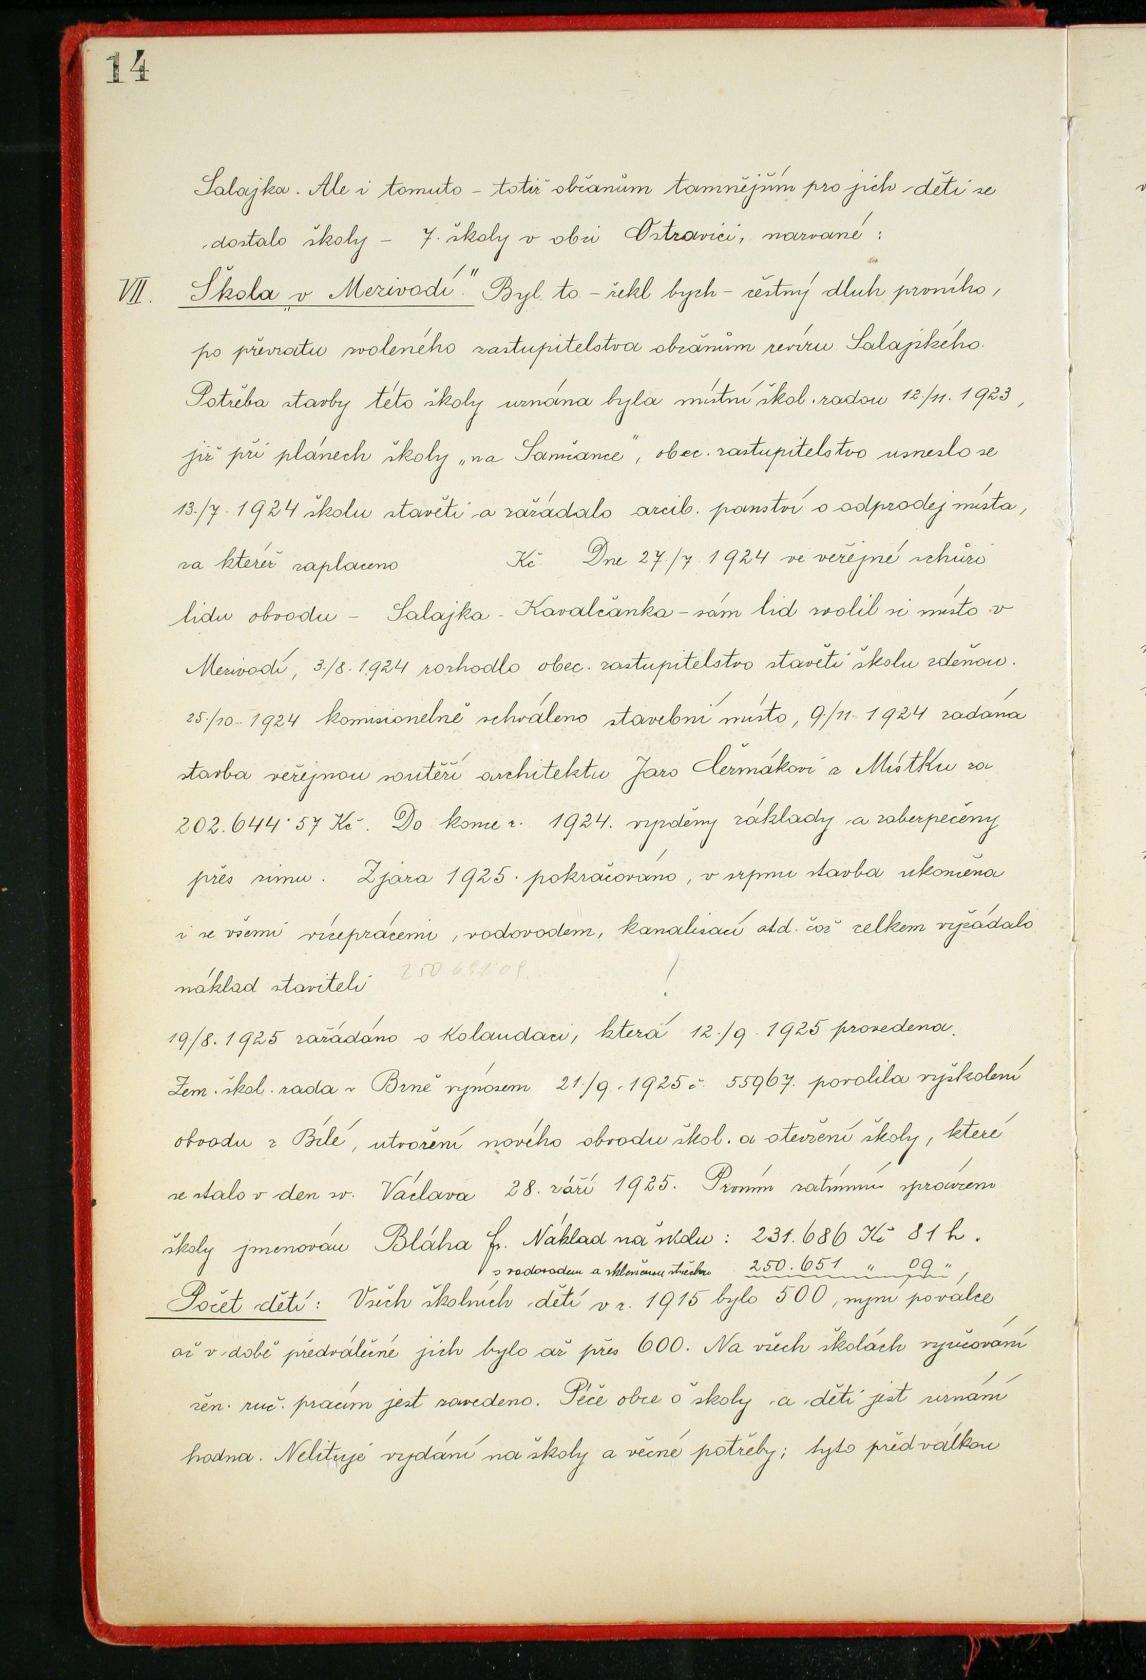 14
Salajka. Ale i tomuto – totiž občanům tamnějším pro jich děti se
dostalo školy – 7. školy v obci Ostravici, nazvané:
VII. Škola „v Mezivodí." Byl to – řekl bych – čestný dluh prvního,
po převratu zvoleného zastupitelstva občánům revíru Salajského.
Potřeba stavby této školy uznána byla místní škol. radou 12./11. 1923,
již při plánech školy „na Samčance", obec. zastupitelstvo usneslo se
13./7. 1924 školu stavěti a zažádalo arcib. panství o odprodej místa,
za kteréž zaplaceno Kč Dne 27./7. 1924 ve veřejné schůzi
lidu obvodu – Salajka - Kavalčanka – sám lid zvolil si místo v
Mezivodí, 3./8. 1924 rozhodlo obec. zastupitelstvo stavěti školu zděnou.
25./10. 1924 komisionelně schváleno stavební místo, 9./11. 1924 zadána
stavba veřejnou soutěží architektu Jaro Čermákovi z Místku za
202.644·57 Kč. Do konce r. 1924. vyzděny základy a zabezpečeny
přes zimu. Zjara 1925. pokračováno, v srpnu stavba ukončena
i se všemi vícepracemi, vodovodem, kanalisací atd. což celkem vyžádalo
náklad staviteli 250 651·09. !
19/8. 1925 zažádáno o kolaudaci, která 12./9. 1925 provedena.
Zem. škol. rada v Brně výnosem 21./9. 1925 č. 55967. povolila vyškolení
obvodu z Bílé, utvoření nového obvodu škol. a otevření školy, které
se stalo v den sv. Václava 28. září 1925. Prvním zatímním správcem
školy jmenován Bláha fr. Náklad na školu: 231.686 Kč 81 h.
s vodovodem a sklenčnou střechou 250.651 " 09 "
Počet dětí: Všech školních dětí v r. 1915 bylo 500, nyní po válce
až v době předválečné jich bylo až přes 600. Na všech školách vyučování
žen. ruč. pracím jest zavedeno. Péče obce o školy a děti jest uznání
hodna. Nelituje vydání na školy a věcné potřeby; tyto před válkou